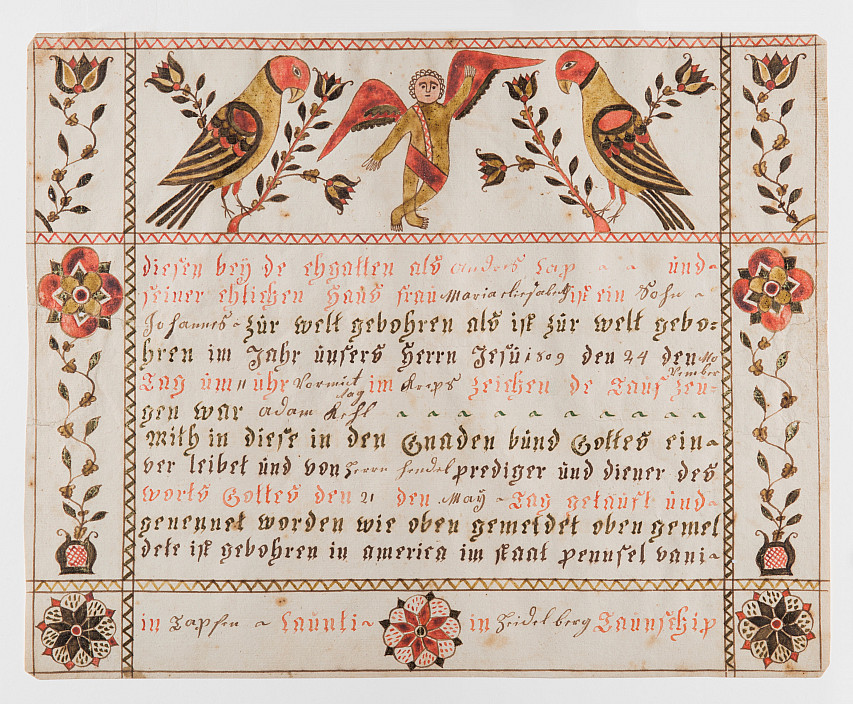 diesen beÿ de ehgatten als anders Lap - - ünd-
seiner ehlichen Haüs fraü Maria elisabeth ist ein Sohn -
Johannes - zür welt gebohren als ist zür welt gebo=
hren im Jahr ünsers Herrn Jesü 1809 den 24 den November
Tag üm 11 ühr Vormittag im Kreps zeichen de Taüf zeü-
gen war adam Kehl
Mith in diese in den Gnaden bünd Gottes ein-
ver leibet ünd von Herrn Hendel prediger ünd diener des
worts Gottes den 21 den Maÿ - Tag getaüft ünd-
genennet worden wie oben gemeldet oben gemel
dete ist gebohren in america im staat pennsel vani-
in Tapfen - Caünti - in Heidel berg Taünschip